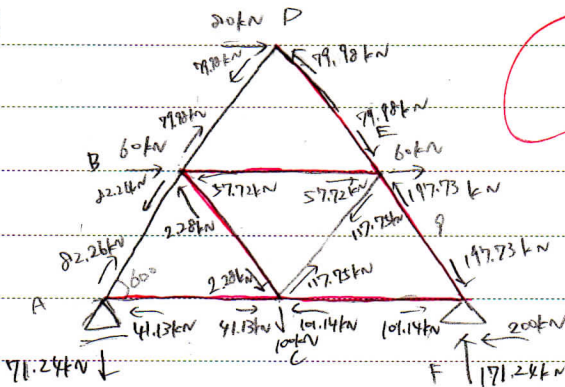 80kN D
79.98kN 79.98kN
79.98kN 79.98kN
E
B 60kN 60kN
82.26kN 57.72kN 57.72kN 197.73kN
2.28kN 117.95kN
82.26kN
60° 2.28kN 117.95kN 197.73kN
A
41.13kN 41.13kN 101.14kN 101.14kN
100kN 200kN
C
71.24kN F 171.24kN